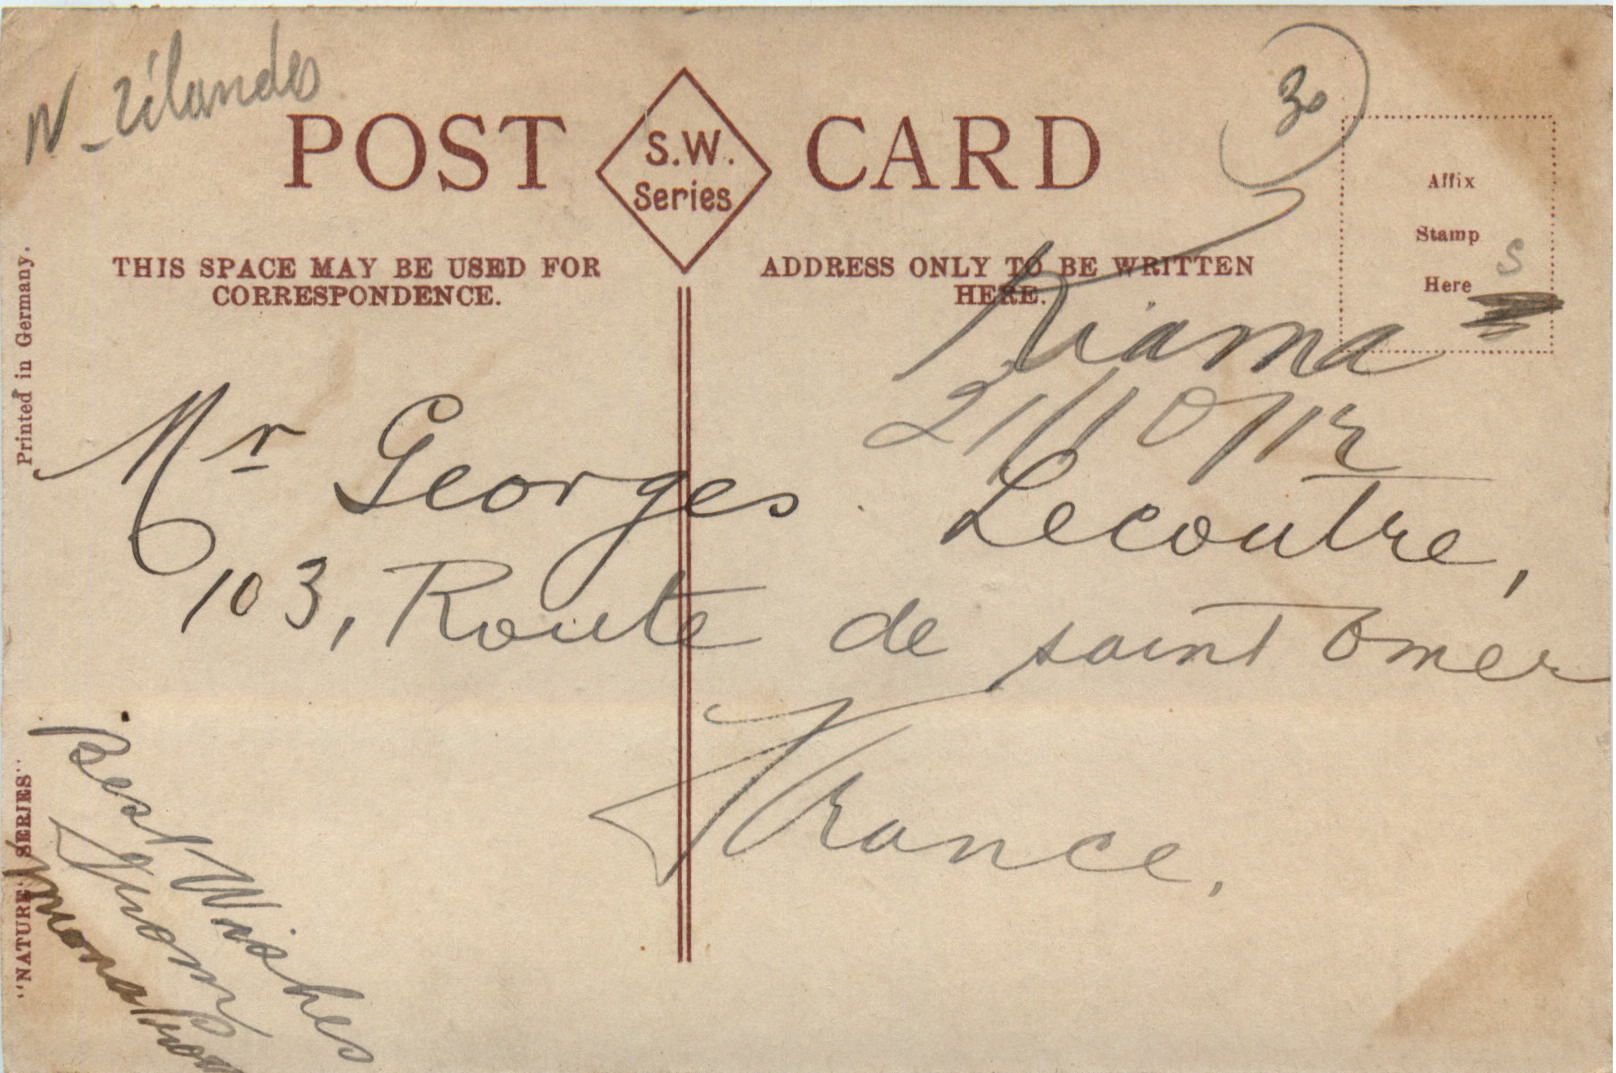 N-Zélande
30
POST CARD
S.W.
Series
THIS SPACE MAY BE USED FOR
CORRESPONDENCE.
ADDRESS ONLY TO BE WRITTEN
HERE.
Affix
Stamp
Here
S
Kiama
21/10/12
Mr Georges Lecoutre,
103, Route de saint Omer
France.
Best Wishes
From
Printed in Germany.
"NATURE SERIES"